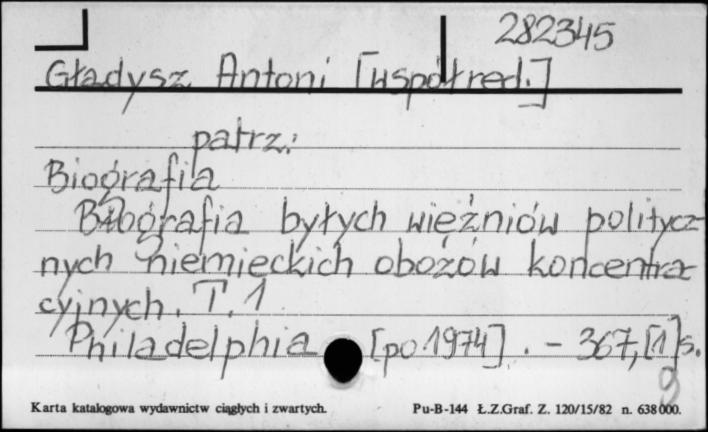 282345
Gładysz Antoni [współred.]
patrz:
Biografia
Biografia byłych więźniów politycz-
nych niemieckich obozów koncentra-
cyjnych. T. 1
Philadelphia [po 1974]. - 367, [1] s.
9
Karta katalogowa wydawnictw ciągłych i zwartych. Pu-B-144 Ł.Z.Graf. Z. 120/15/82 n. 638000.